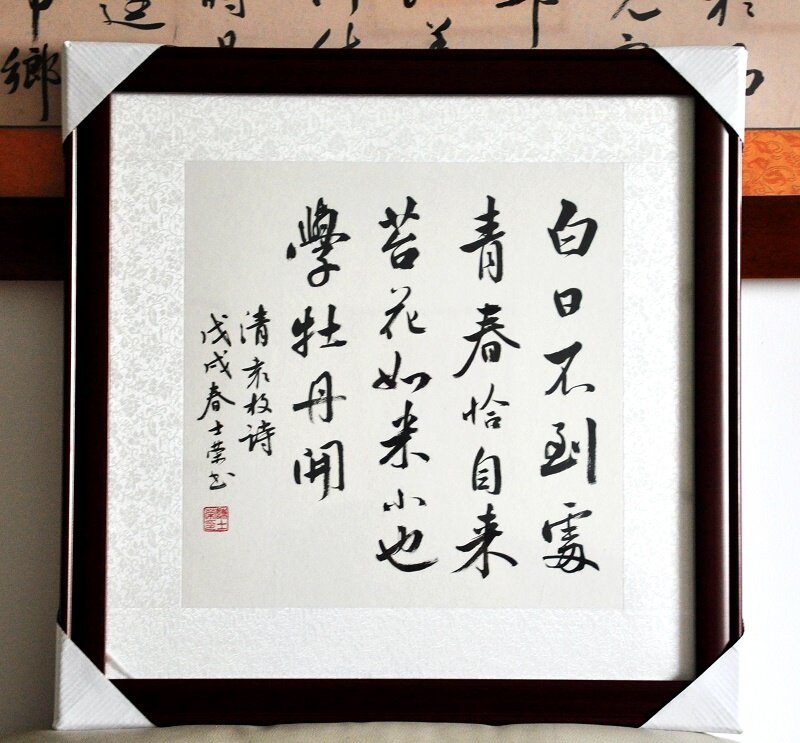 白日不到處
青春恰自来
苔花如米小也
學牡丹開
清袁枚詩
戊戌春士荣书
鄉